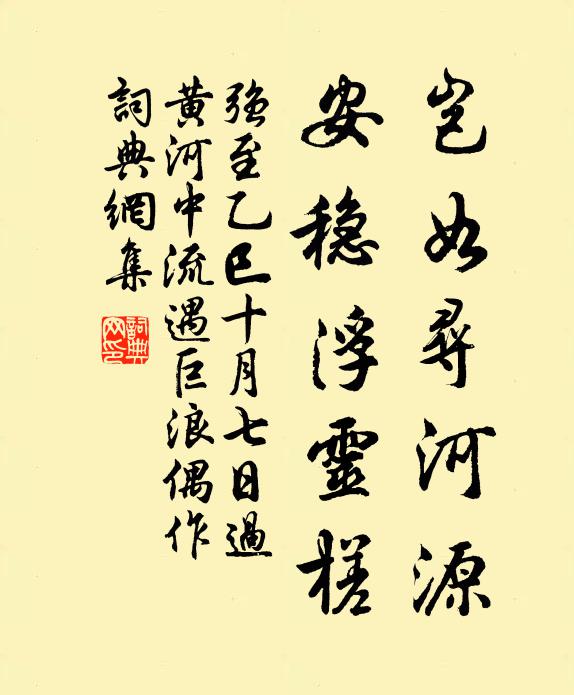 岂如寻河源
安稳浮靈槎
強至乙巳十月七日過
黄河中流遇巨浪偶作
詞典網集
詞典网印